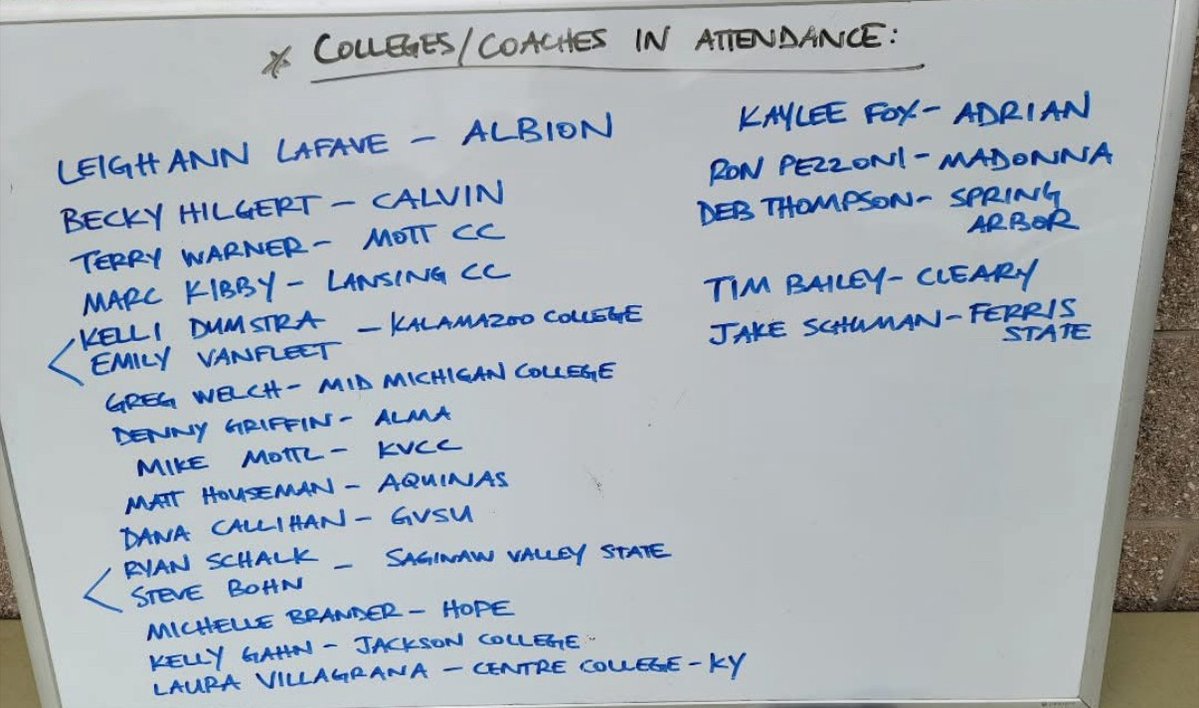 * COLLEGES/COACHES IN ATTENDANCE:
LEIGHANN LAFAVE - ALBION
BECKY HILGERT - CALVIN
TERRY WARNER - MOTT CC
MARC KIBBY - LANSING CC
KELLI DUMSTRA - KALAMAZOO COLLEGE
EMILY VANFLEET
GREG WELCH - MID MICHIGAN COLLEGE
DENNY GRIFFIN - ALMA
MIKE MOTTL - KVCC
MATT HOUSEMAN - AQUINAS
DANA CALLIHAN - GVSU
RYAN SCHALK - SAGINAW VALLEY STATE
STEVE BOHN
MICHELLE BRANDER - HOPE
KELLY GAHN - JACKSON COLLEGE
LAURA VILLAGRANA - CENTRE COLLEGE - KY
KAYLEE FOX - ADRIAN
RON PEZZONI - MADONNA
DEB THOMPSON - SPRING
ARBOR
TIM BAILEY - CLEARY
JAKE SCHUMAN - FERRIS
STATE